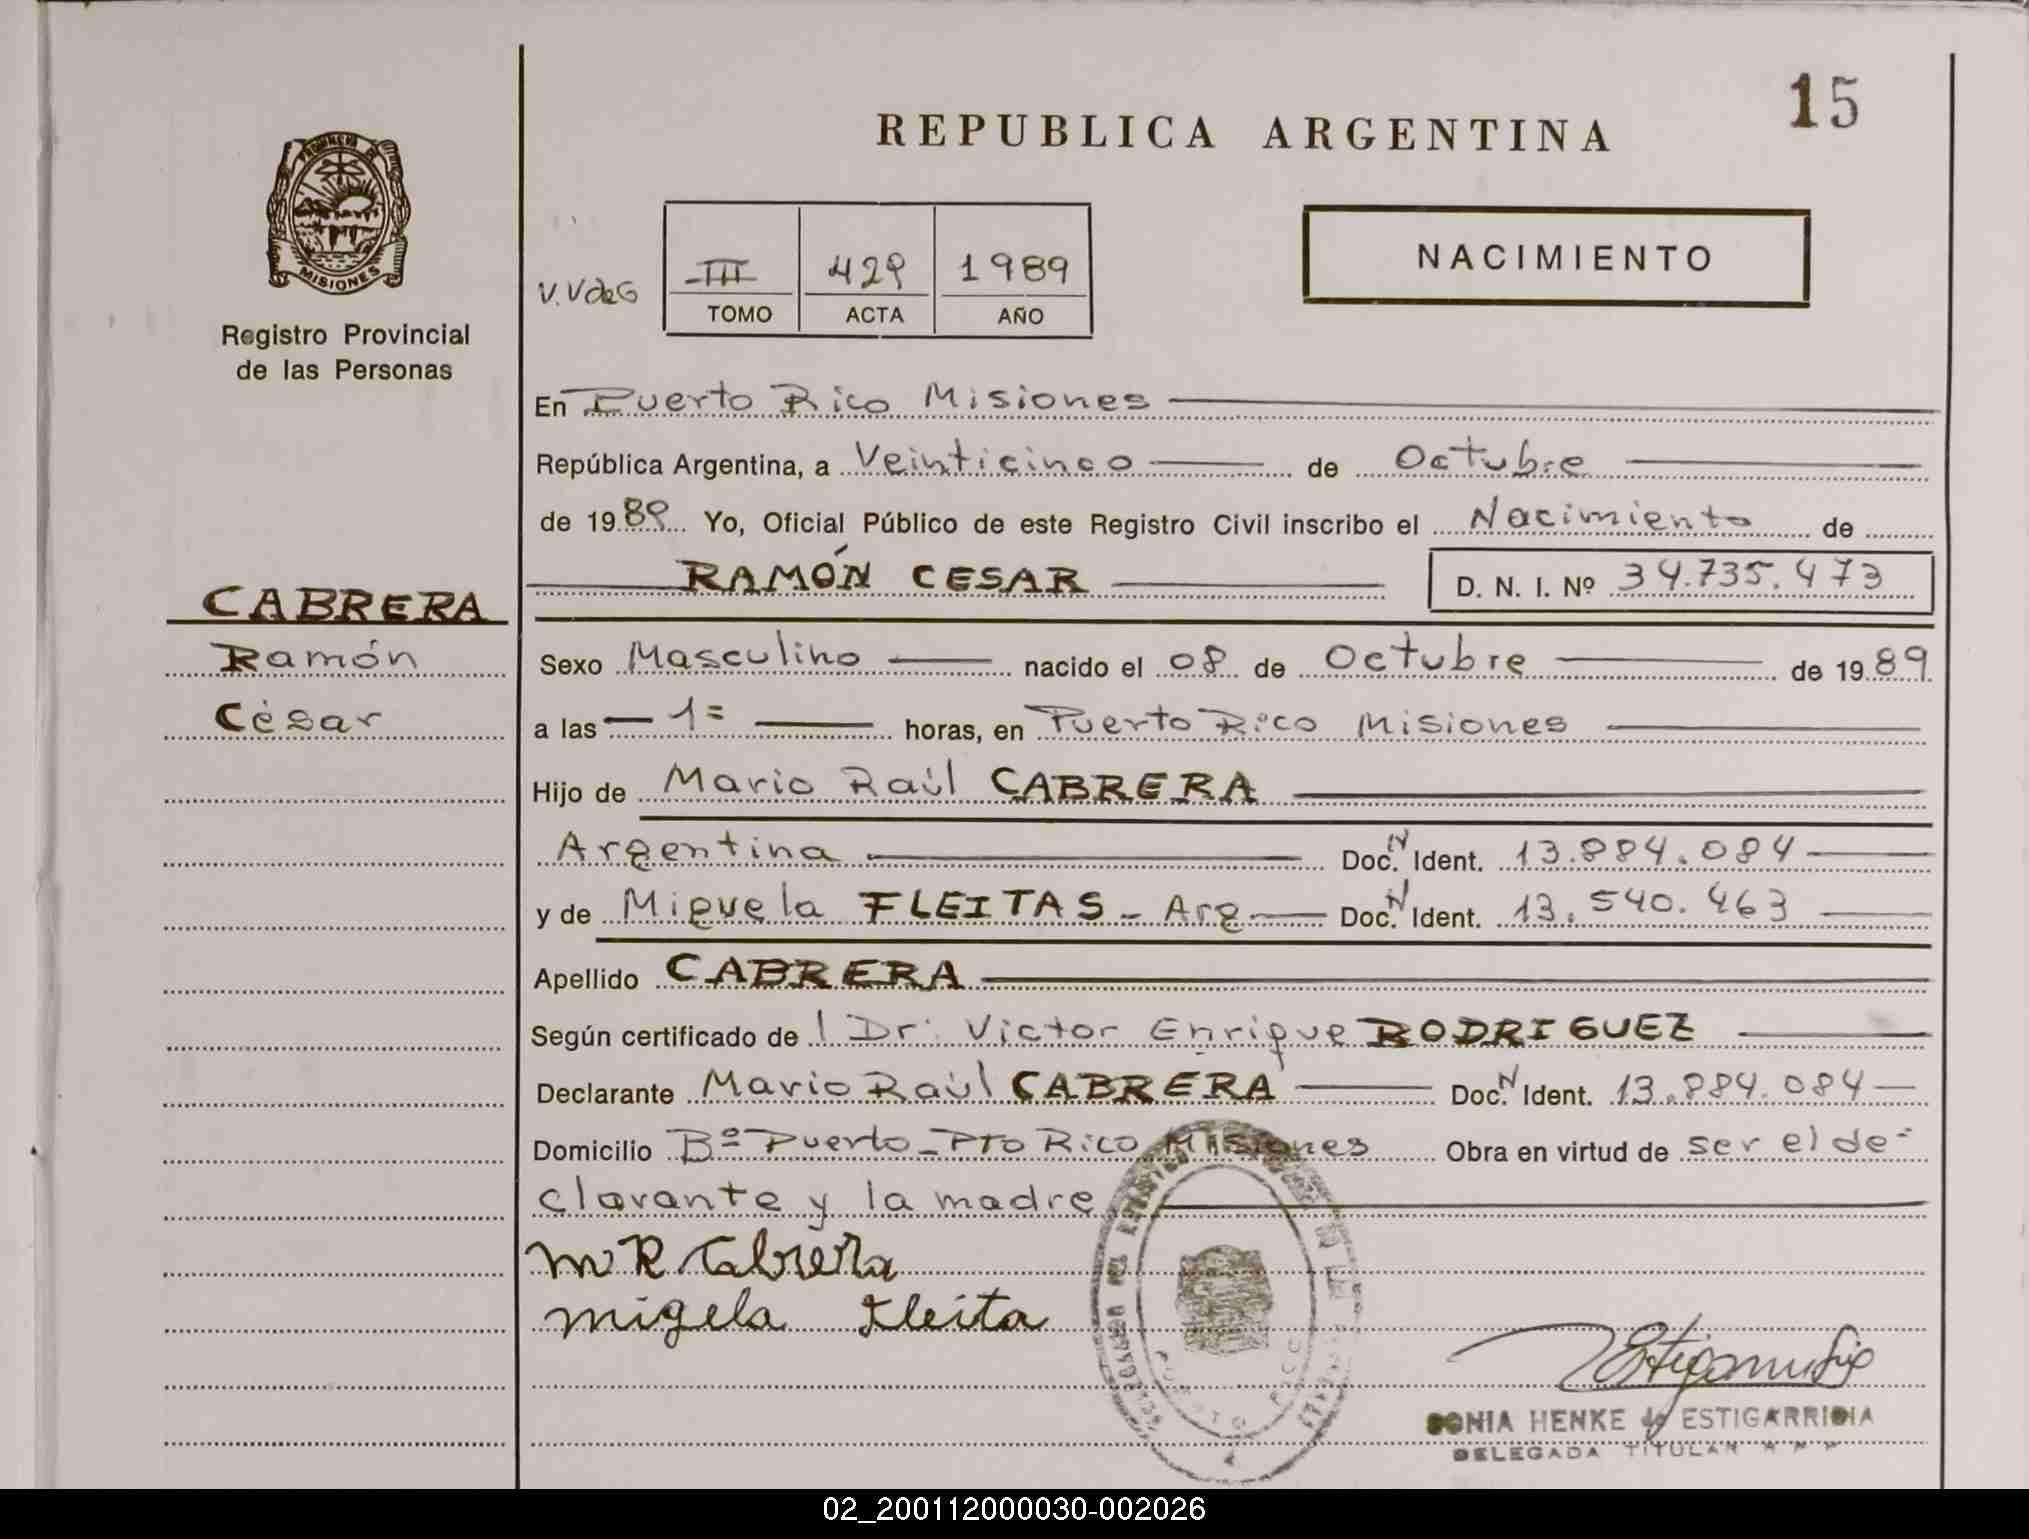 15
REPUBLICA ARGENTINA
PROVINCIA DE
MISIONES
Registro Provincial
de las Personas
V.VdeG
III 429 1989
TOMO ACTA AÑO
NACIMIENTO
En Puerto Rico Misiones
República Argentina, a Veinticinco de Octubre
de 1989 Yo, Oficial Público de este Registro Civil inscribo el Nacimiento de
RAMÓN CESAR D. N. I. Nº 34.735.473
CABRERA
Ramón
César
Sexo Masculino nacido el 08 de Octubre de 1989
a las 1= horas, en Puerto Rico Misiones
Hijo de Mario Raúl CABRERA
Argentina Doc. N Ident. 13.884.084
y de Miguela FLEITAS - Arg Doc. N Ident. 13.540.463
Apellido CABRERA
Según certificado de l Dr: Victor Enrique RODRIGUEZ
Declarante Mario Raúl CABRERA Doc. N Ident. 13.884.084
Domicilio Bº Puerto - Pto Rico Misiones Obra en virtud de ser el de-
clarante y la madre
M R Cabrera
migela fleita
PUERTO RICO
SONIA HENKE de ESTIGARRIBIA
DELEGADA TITULAR
02_200112000030-002026